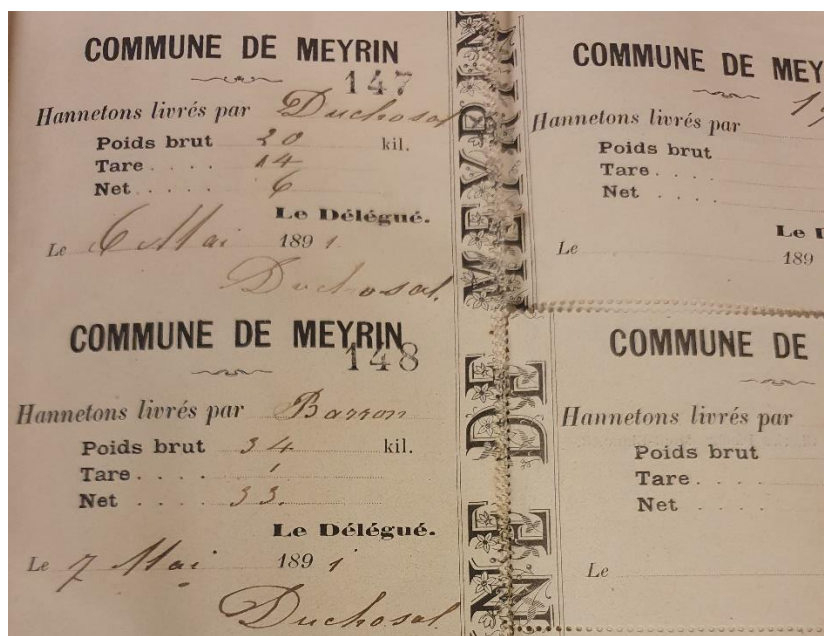 COMMUNE DE MEYRIN
147
Hannetons livrés par Duchosal
Poids brut 20 kil.
Tare . . . . 14
Net . . . . . 6
Le Délégué.
Le 6 Mai 1891
Duchosal
COMMUNE DE MEYRIN
148
Hannetons livrés par Barron
Poids brut 34 kil.
Tare . . . . 1
Net . . . . . 33.
Le Délégué.
Le 7 Mai 1891
Duchosal
MEYRIN
DE
MEYRIN
DE
COMMUNE DE MEY
Hannetons livrés par
Poids brut
Tare . . . .
Net . . . . .
Le D
Le 189
COMMUNE DE
Hannetons livrés par
Poids brut
Tare . . . .
Net . . . . .
Le